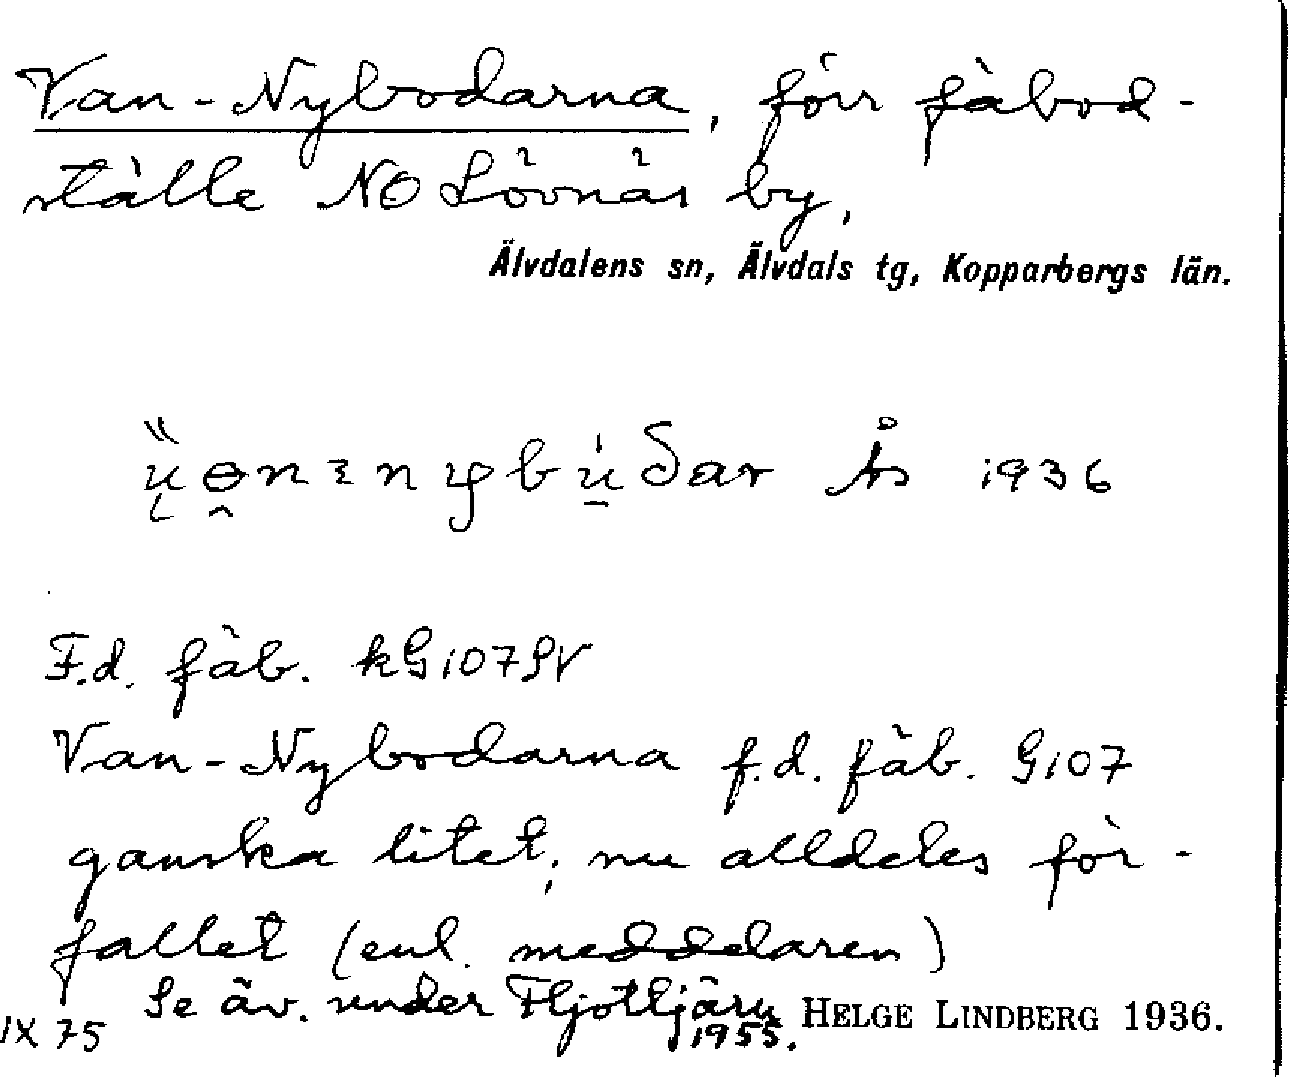 Van-Nybodarna, förr fäbod-
ställe NO Lövnäs by,
Älvdalens sn, Älvdals tg, Kopparbergs län.
Ås 1936
F.d. fäb. kG107SV
Van-Nybodarna f.d. fäb. G107
ganska litet; nu alldeles för-
fallet (enl. meddelaren)
Se äv. under Fljottjärn
1955. HELGE LINDBERG 1936.
IX 75